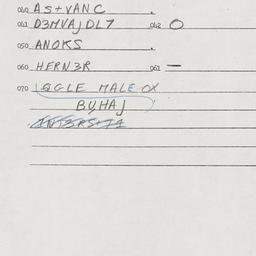 040 AS+VANC .
041 D3MVAJDL7 042 O
050 ANOKS .
060 HFRN3R 061 —
070 QGLE MALE OX
BUHAJ